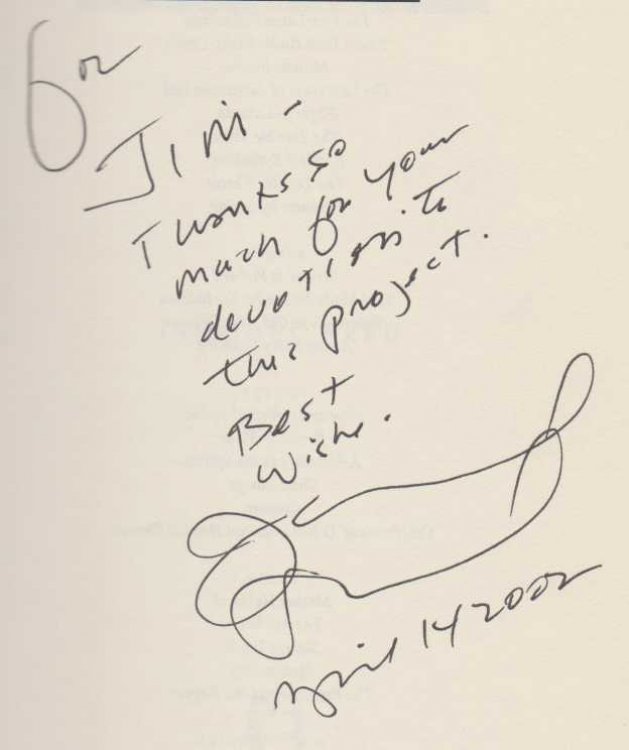 For
Jim -
Thanks so
much for your
devotion to
this project.
Best
Wishes.
April 14 2002